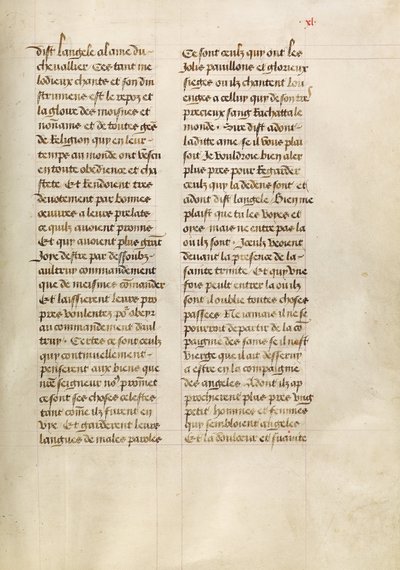 xl.
dist langele a lame du
cheuallier Ces tant me
lodieux chants et son din
strumens est le repoz et
la gloire des moisnes et
nonnains et de toutes gens
de Religion quy en leur
temps au monde ont vescu
en toute obedience et cha
stete Et rendoient tres
deuotement par bonnes
oeuures a leurs prelats
ce quilz auoient promis
Et quy auoient plus grant
Joye destre par dessoubz
aultruy commandement
que de meismes comander
Et laissierent leurs pro
pres voulentez po' obeyr
au commandement daul
truy . Certes ce sont ceulz
quy continuellement
penserent aux biens que
nre seigneur no' promet
ce sont ses choses celestes
tant come ilz furent en
vye Et garderent leurs
langues de males paroles
Ce sont ceulz quy ont les
Jolis pauillons et glorieux
sieges ou ilz chantent lou
enges a celluy quy de son tres
precieux sang Rachatta le
monde . Sire dist adont
laditte ame se il vous plai
soit Je vouldroie bien aler
plus pres pour Regarder
ceulz quy la dedens sont et
adont dist langele Bien me
plaist que tu les voyes et
oyes mais ne entre pas la
ou ilz sont . Iceulz voient
deuant la presence de la
sainte trinite Et quy vne
fois peult entrer la ou ilz
sont il oublie toutes choses
passees Ne jamais il ne se
pourroit departir de la co
paignie des sains se il nest
vierge que il ait desseruy
a estre en la compaignie
des angeles . Adont ilz ap
procherent plus pres vng
petit hommes et femmes
quy sembloient angeles
Et la doulceur et suauite